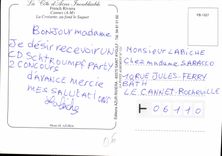 La Côte d'Azur Inoubliable
French Riviera
Cannes (A.M)
La Croisette, au fond le Suquet
BONJOUR madame
Je désire recevoir UN
CD SchTROUMPF PARTY
2 CONCOURS
d'AVANCE mercie
mes salutations
MONSIEUR LABICHE
Chez madame SABACCO
10 RUE JULES FERRY
BATH
LE CANNET-ROCHEVILLE
06110